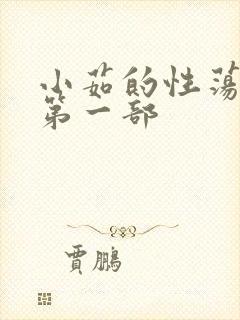 小茹的性荡
第一部
賈鵬